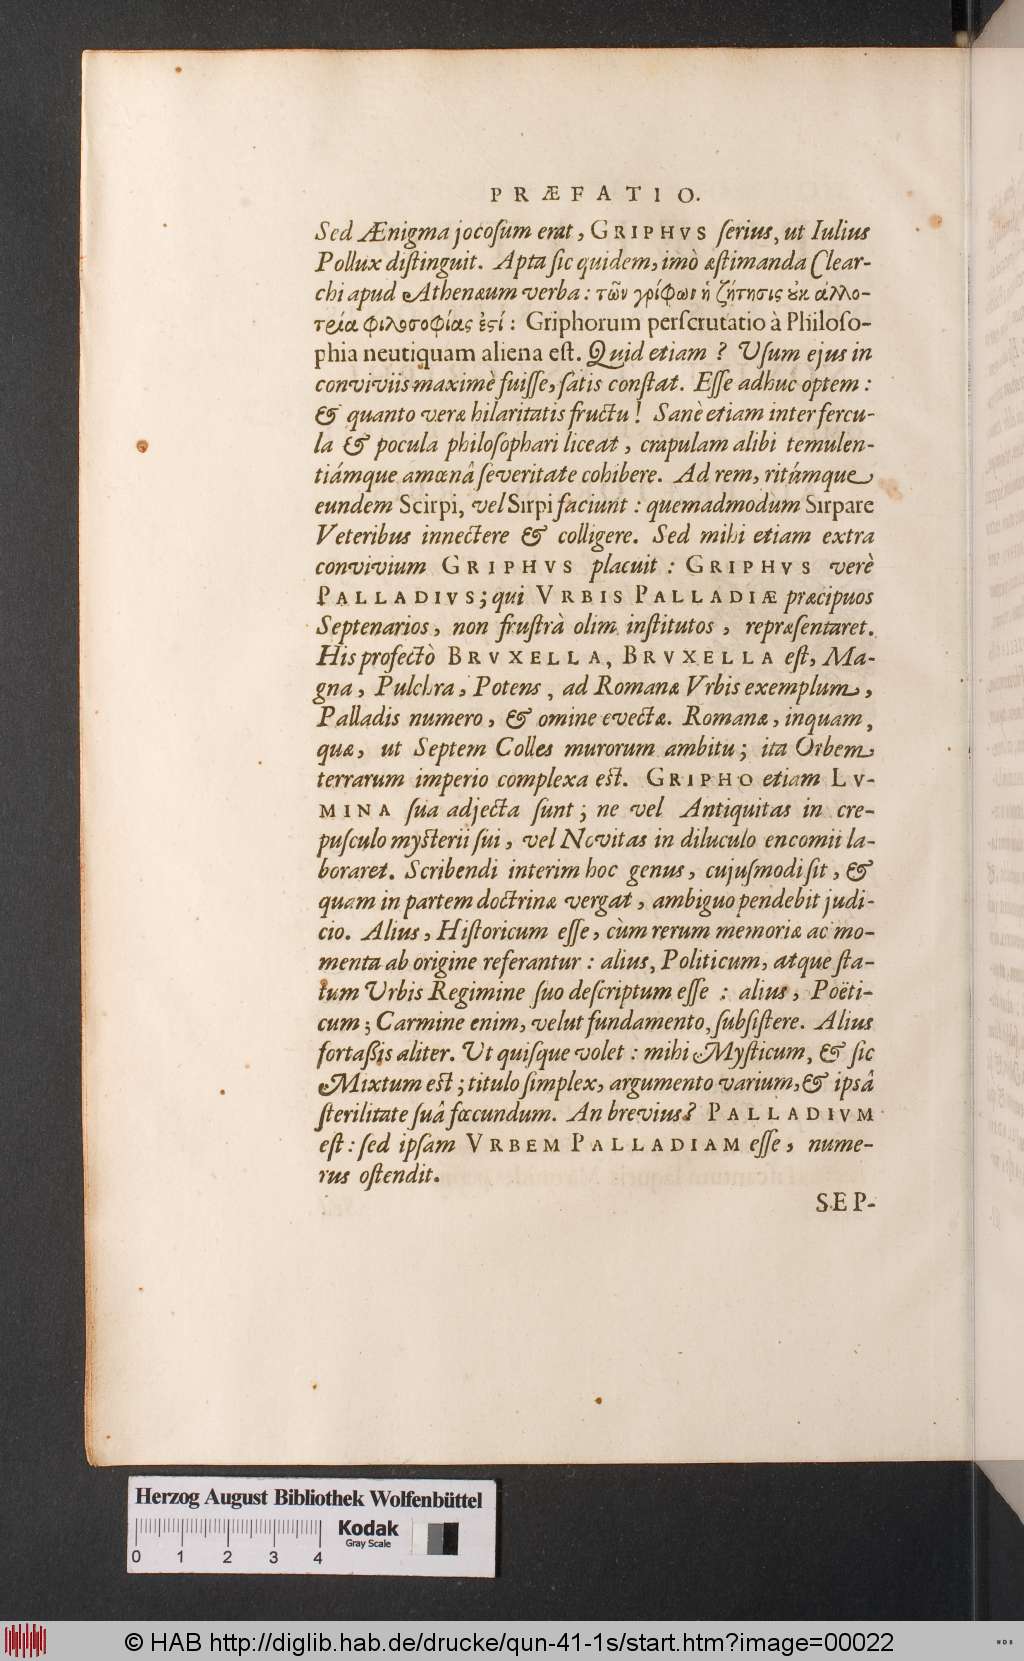 PRÆFATIO.
Sed Ænigma jocoſum erat, GRIPHVS ſerius, ut Iulius
Pollux diſtinguit. Apta ſic quidem, imò æſtimanda Clear-
chi apud Athenæum verba: τῶν γρίφων ἡ ζήτησις ȣκ ἀλλο-
τρία φιλοσοφίας ἐϛί: Griphorum perſcrutatio à Philoſo-
phia neutiquam aliena eſt. Quid etiam? Vſum ejus in
conviviis maximè fuiſſe, ſatis conſtat. Eſſe adhuc optem:
& quanto veræ hilaritatis fructu! Sanè etiam inter fercu-
la & pocula philoſophari liceat, crapulam alibi temulen-
tiámque amœnâ ſeveritate cohibere. Ad rem, ritúmque
eundem Scirpi, vel Sirpi faciunt: quemadmodùm Sirpare
Veteribus innectere & colligere. Sed mihi etiam extra
convivium GRIPHVS placuit: GRIPHVS verè
PALLADIVS; qui VRBIS PALLADIÆ præcipuos
Septenarios, non fruſtrà olim inſtitutos, repræſentaret.
His profectò BRVXELLA, BRVXELLA eſt, Ma-
gna, Pulchra, Potens, ad Romanæ Vrbis exemplum,
Palladis numero, & omine evectæ. Romanæ, inquam,
quæ, ut Septem Colles murorum ambitu; ita Orbem
terrarum imperio complexa eſt. GRIPHO etiam LV-
MINA ſua adjecta ſunt; ne vel Antiquitas in cre-
puſculo myſterii ſui, vel Novitas in diluculo encomii la-
boraret. Scribendi interim hoc genus, cujuſmodi ſit, &
quam in partem doctrinæ vergat, ambiguo pendebit judi-
cio. Alius, Hiſtoricum eſſe, cùm rerum memoriæ ac mo-
menta ab origine referantur: alius, Politicum, atque ſta-
tum Vrbis Regimine ſuo deſcriptum eſſe: alius, Poëti-
cum; Carmine enim, velut fundamento, ſubſiſtere. Alius
fortaßis aliter. Vt quiſque volet: mihi Myſticum, & ſic
Mixtum eſt; titulo ſimplex, argumento varium, & ipsâ
ſterilitate ſuâ fœcundum. An brevius? PALLADIVM
eſt: ſed ipſam VRBEM PALLADIAM eſſe, nume-
rus oſtendit.
SEP-
Herzog August Bibliothek Wolfenbüttel
Kodak
Gray Scale
0 1 2 3 4
© HAB http://diglib.hab.de/drucke/qun-41-1s/start.htm?image=00022